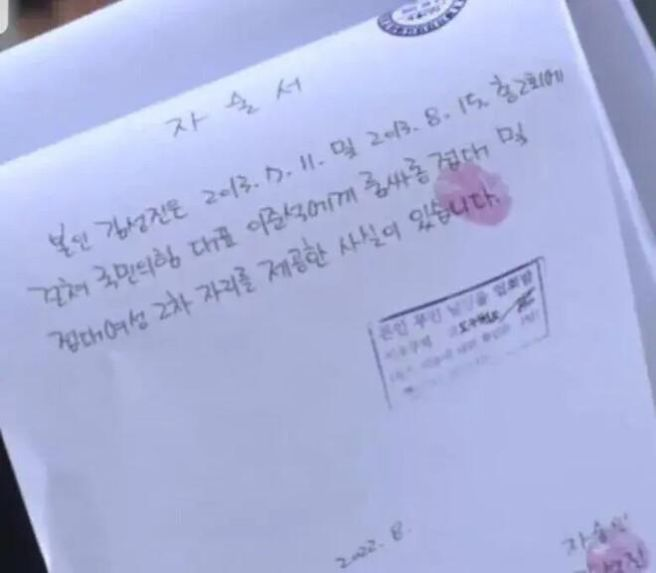 자 술 서
본인 김성진은 2013. 7. 11. 및 2013. 8. 15. 총2회에
걸쳐 국민의힘 대표 이준석에게 룸싸롱 접대 및
접대여성 2차 자리를 제공한 사실이 있습니다.
본인
2022. 8.
자술인